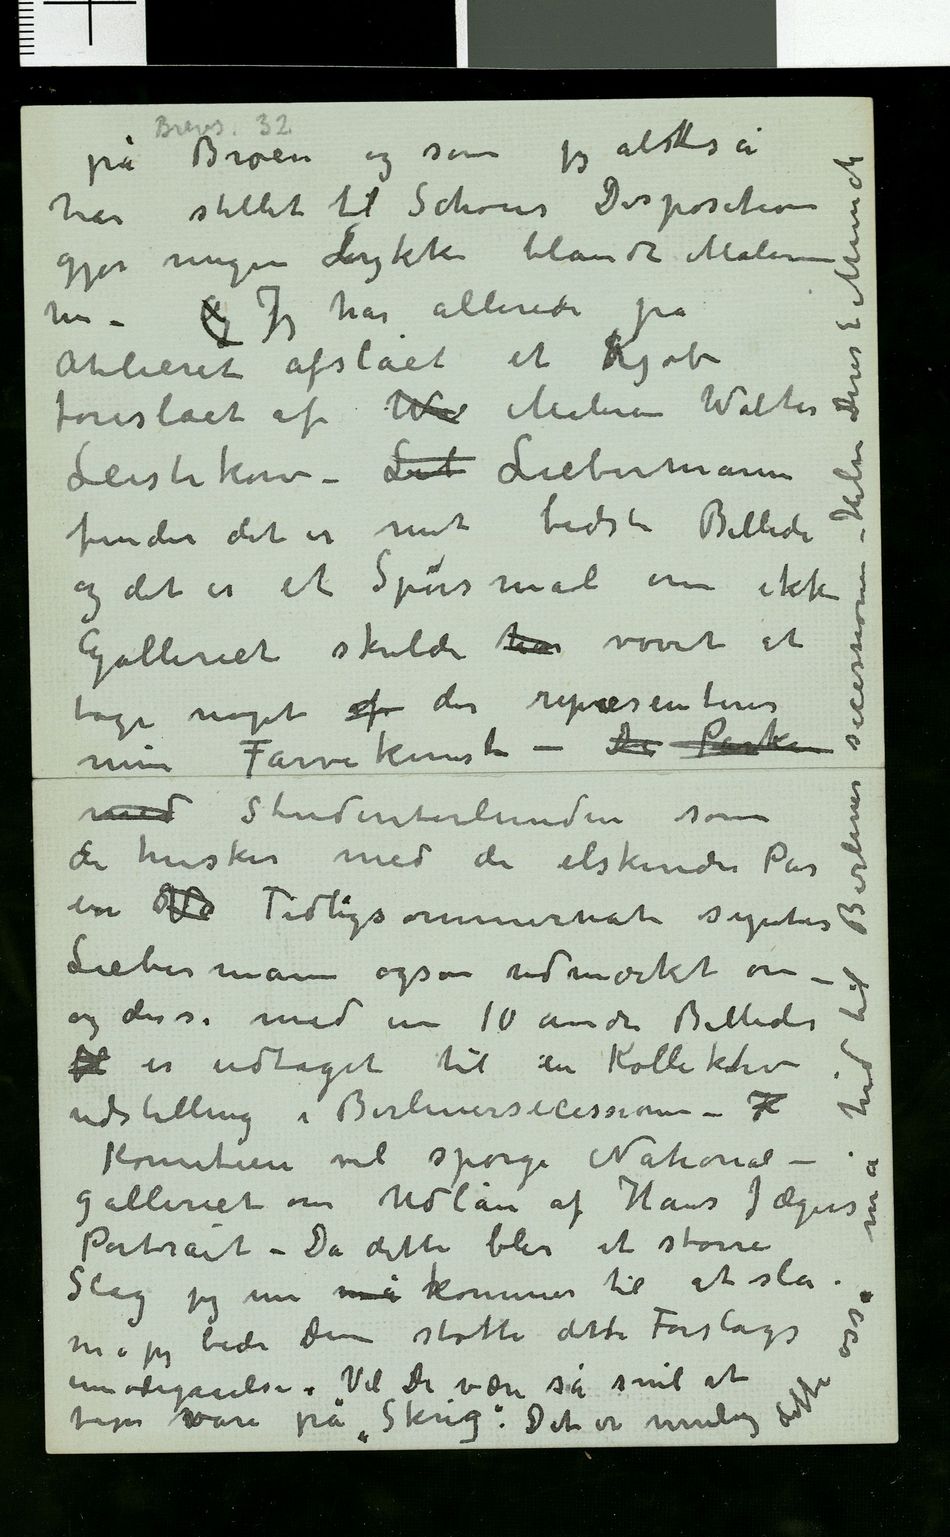 Brevs. 32
på Broen og som jeg altså
har stillet til Schous Disposition
gjør megen Lykke blandt Malerne
her – Og Jeg har allerede på
Atelieret afslået et Kjøb
foreslået af Wa Maleren Walter
Leistikow – Leit Liebermann
finder det er mit bedste Billede
og det er et Spörsmål om ikke
Galleriet skulde ha vovet at
tage noget af der repræsenterer
min Farvekunst – De Parken
med Studenterlunden som
de husker med de elskende Par
en Ve Tidligsommernat syntes
Liebermann også udmærket om –
og disse med en 10 andre Billeder
til er udtaget til en Kollektiv
udstilling i Berlinersecessionen – K
Komiteen vil spørge National-
galleriet om Udlån af Hans Jægers
Portrait – Da dette blir et større
Slag jeg nu må kommer til at slå
må jeg bede Dem støtte dette Forslags
imødegåelse. Vil De være så snil at
tage vare på „Skrig". Det er muligt dette også
må. hid til Berliner secessionen – Hilsen Deres E Munch